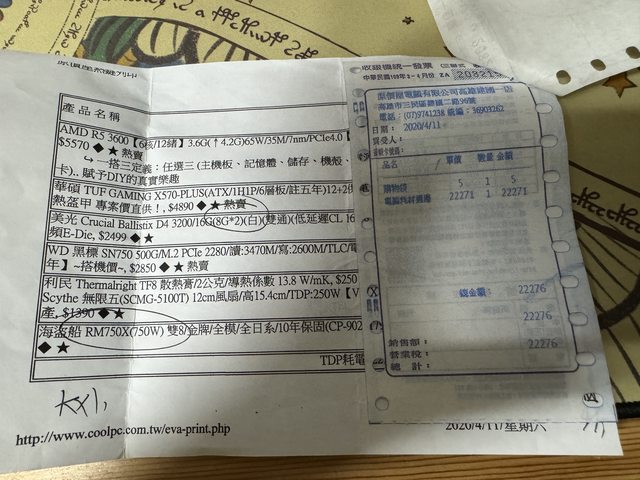 原價屋點點列印
產品名稱
AMD R5 3600【6核/12緒】3.6G(↑4.2G)65W/35M/7nm/PCIe4.0【
$5570 ◆ ★ 熱賣
↪ 一搭三定義：任選三 (主機板、記憶體、儲存、機殼、
卡).. 賦予DIY的真實樂趣
華碩 TUF GAMING X570-PLUS(ATX/1H1P/6層板/註五年)12+2相
熱盔甲 專案價直供！, $4890 ◆ ★ 熱賣
美光 Crucial Ballistix D4 3200/16G(8G*2)(白)(雙通)(低延遲CL 16
頻E-Die, $2499 ◆ ★
WD 黑標 SN750 500G/M.2 PCIe 2280/讀:3470M/寫:2600M/TLC/
年】~搭機價~, $2850 ◆ ★ 熱賣
利民 Thermalright TF8 散熱膏/2公克/導熱係數 13.8 W/mK, $250
Scythe 無限五(SCMG-5100T) 12cm風扇/高15.4cm/TDP:250W【
產, $1390 ◆ ★
海盜船 RM750X(750W) 雙8/金牌/全模/全日系/10年保固(CP-902
◆ ★
TDP耗電
http://www.coolpc.com.tw/eva-print.php
2020/4/11/星期六
收銀機統一發票
中華民國109年3-4月份 ZA
原價屋電腦有限公司高雄建國一店
高雄市三民區建國二路96號
電話：(07)9741238 統編：36903262
日期： 2020/4/11
買受人：
品名 單價 數量 金額
購物袋 5 1 5
電腦耗材週邊 22271 1 22271
22276
22276
銷售額： 22276
營業稅：
總 計：